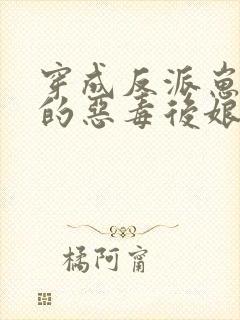 穿成反派崽崽
的惡毒後娘
橘阿甯